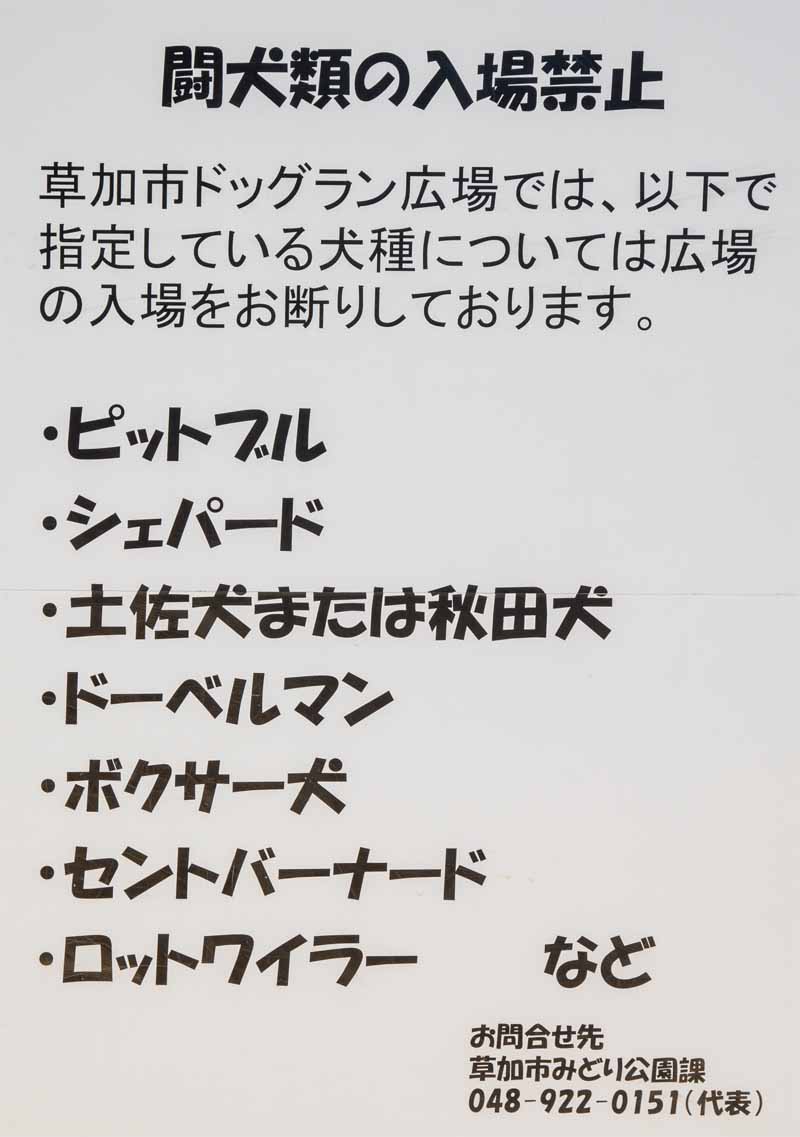 闘犬類の入場禁止
草加市ドッグラン広場では、以下で
指定している犬種については広場
の入場をお断りしております。
・ピットブル
・シェパード
・土佐犬または秋田犬
・ドーベルマン
・ボクサー犬
・セントバーナード
・ロットワイラー　　など
お問合せ先
草加市みどり公園課
048-922-0151(代表)